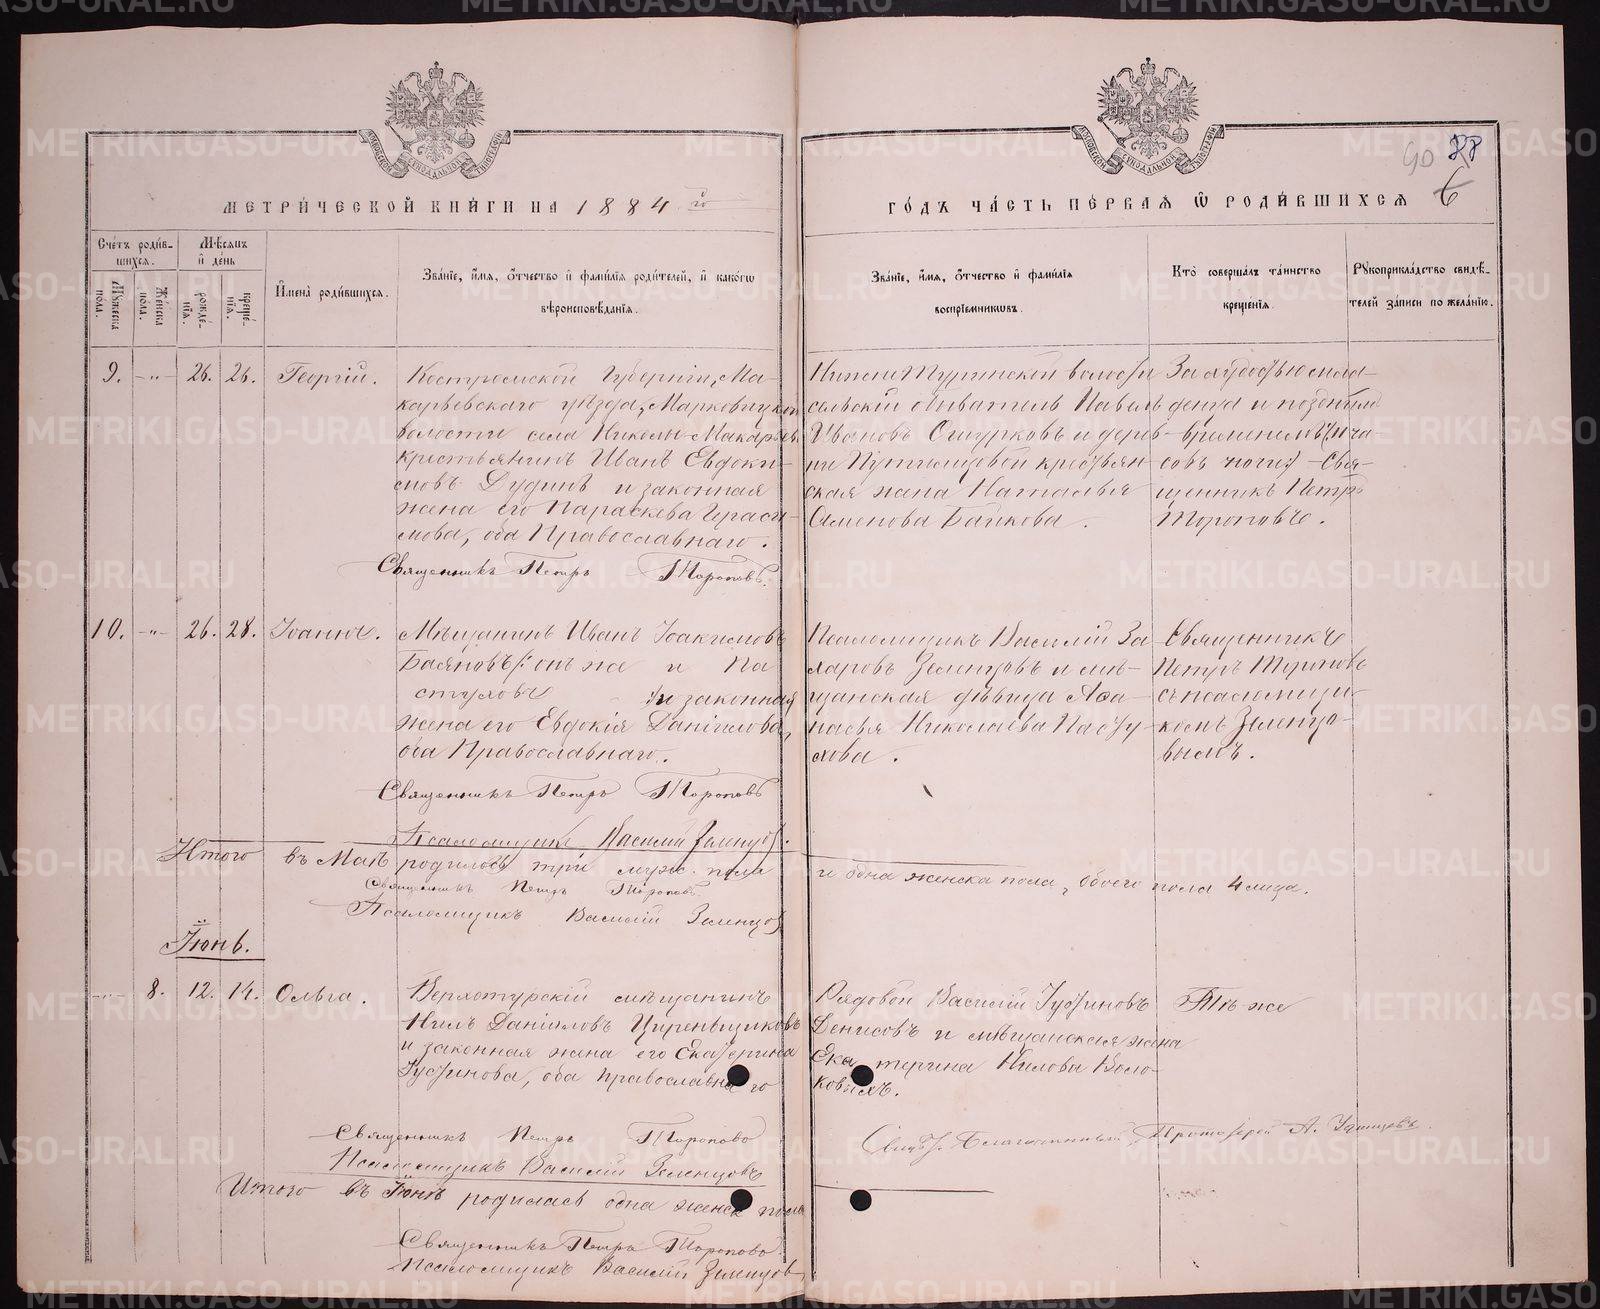 МЕТРИ́ЧЕСКОЙ КНИ́ГИ НА 1884 го
ГО́ДЪ ЧА́СТЬ ПЕ́РВАЯ Ѿ РОДИ́ВШИХСЯ
90
6
Сче́тъ роди́в-
шихся.
Мѣ́сяцъ
и де́нь
Му́жеска
пола.
Же́нска
пола.
рожде́-
нія.
креще́-
нія.
Имена̀ роди́вшихся.
Зва́ніе, и́мя, о́тчество и фами́лія роди́телей, и како́гѡ
вѣроисповѣ́данія.
Зва́ніе, и́мя, о́тчество и фами́лія
воспріе́мникѡвъ.
Кто̀ соверша́лъ та́инство
креще́нія.
Рукоприкла́дство свидѣ́-
телей за́писи по жела́нію.
9. -"- 26. 26. Георгій.
Костромской Губерніи, Ма-
карьевскаго уѣзда, Марковицкой
волости села Николы-Макарьев.
крестьянинъ Иванъ Евдоки-
мовъ Дудинъ и законная
жена его Параскева Гераси-
мова, оба Православнаго.
Священникъ Петръ Тороповъ.
Нижне Туринской волости
сельскій обыватель Павелъ
Ивановъ Огурковъ и дерев-
ни Путимцовой крестьян-
ская жена Наталья
Семенова Байкова.
За слабостью мла-
денца и позднимъ
временемъ
совъ ночи:/ Свя-
щенникъ Петръ
Тороповъ.
10. -"- 26. 28. Іоаннъ.
Мѣщанинъ Иванъ Іоакимовъ
Баяновъ /: онъ же и Па
стуховъ :/ и законная
жена его Евдокія Даніилова,
оба Православнаго.
Священникъ Петръ Тороповъ
Псаломщикъ Василій Зеленцовъ.
Псаломщикъ Василій За
харовъ Зеленцовъ и мѣ-
щанская дѣвица Аѳа-
насья Николаева Пасту-
хова.
Священникъ
Петръ Тороповъ
съ псаломщи-
комъ Зеленцо-
вымъ.
Итого въ Маѣ родилось три муж. пола
и одна женска пола, обоего пола 4 лица.
Священникъ Петръ Тороповъ
Псаломщикъ Василій Зеленцовъ
Іюнь.
8. 12. 14. Ольга.
Верхотурскій мѣщанинъ
Нилъ Даніиловъ Циреньщиковъ
и законная жена его Екатерина
Іустинова, оба православнаго
Рядовой Василій Іустиновъ
Денисовъ и мѣщанская жена
Екатерина Нилова Воло-
ковыхъ.
Тѣ-же
Священникъ Петръ Тороповъ
Псаломщикъ Василій Зеленцовъ
Благочинный Протоіерей А.
Итого въ Іюнѣ родилась одна женск пола
Священникъ Петръ Тороповъ
Псаломщикъ Василій Зеленцовъ